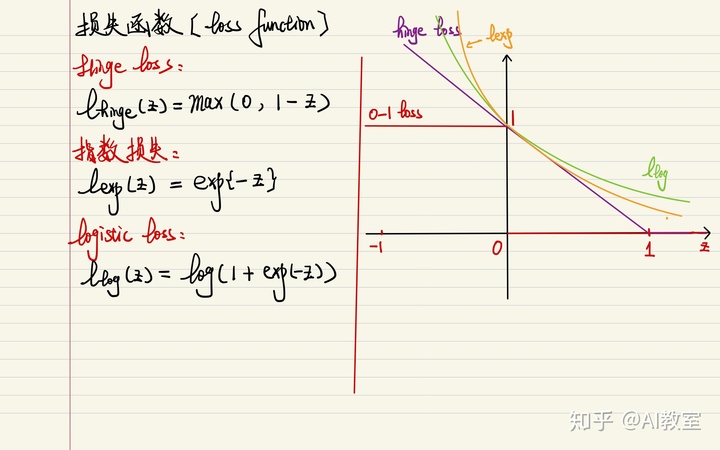 损失函数 [loss function]
Hinge loss:
ℓhinge(z) = max(0, 1-z)
指数损失:
ℓexp(z) = exp{-z}
logistic loss:
ℓlog(z) = log(1+exp(-z))
hinge loss
ℓexp
0-1 loss
1
ℓlog
-1
0
1
z
知乎 @AI教室